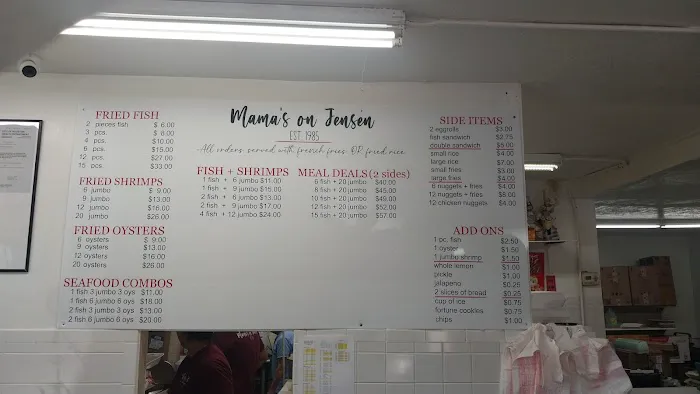 Mama's on Jensen
EST. 1985
All orders served with french fries OR fried rice
FRIED FISH
2 pieces fish $ 6.00
3 pcs. $ 8.00
4 pcs. $10.00
6 pcs. $15.00
12 pcs. $27.00
15 pcs. $33.00
FRIED SHRIMPS
6 jumbo $ 9.00
9 jumbo $13.00
12 jumbo $16.00
20 jumbo $26.00
FRIED OYSTERS
6 oysters $ 9.00
9 oysters $13.00
12 oysters $16.00
20 oysters $26.00
SEAFOOD COMBOS
1 fish 3 jumbo 3 oys $11.00
1 fish 6 jumbo 6 oys $18.00
2 fish 3 jumbo 3 oys $13.00
2 fish 6 jumbo 6 oys $20.00
FISH + SHRIMPS
1 fish + 6 jumbo $11.00
1 fish + 9 jumbo $15.00
2 fish + 6 jumbo $13.00
2 fish + 9 jumbo $17.00
4 fish + 12 jumbo $24.00
MEAL DEALS(2 sides)
6 fish + 20 jumbo $40.00
8 fish + 20 jumbo $45.00
10 fish + 20 jumbo $49.00
12 fish + 20 jumbo $52.00
15 fish + 20 jumbo $57.00
SIDE ITEMS
2 eggrolls $3.00
fish sandwich $2.75
double sandwich $5.00
small rice $4.00
large rice $7.00
small fries $3.00
large fries $4.00
6 nuggets + fries $4.00
12 nuggets + fries $5.00
12 chicken nuggets $4.00
ADD ONS
1 pc. fish $2.50
1 oyster $1.50
1 jumbo shrimp $1.50
whole lemon $1.00
pickle $1.00
jalapeno $0.25
2 slices of bread $0.25
cup of ice $0.75
fortune cookies $0.75
chips $1.00